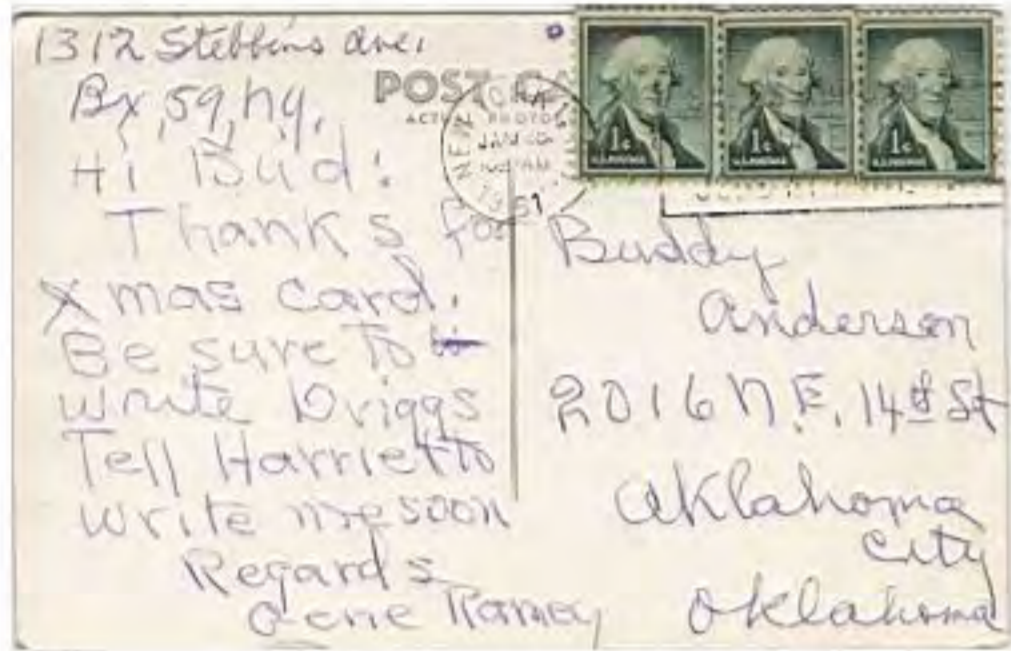 1312 Stebbins Ave.
Bx, 59, NY.
Hi Bud:
Thanks for
Xmas card.
Be sure to
write Driggs
Tell Harriet to
write me soon
Regards
Gene Ramey
POST
ACTUAL
NEW
JAN
1¢
1¢
1¢
Buddy
Anderson
2016 N.E. 14th St
Oklahoma
City
Oklahoma